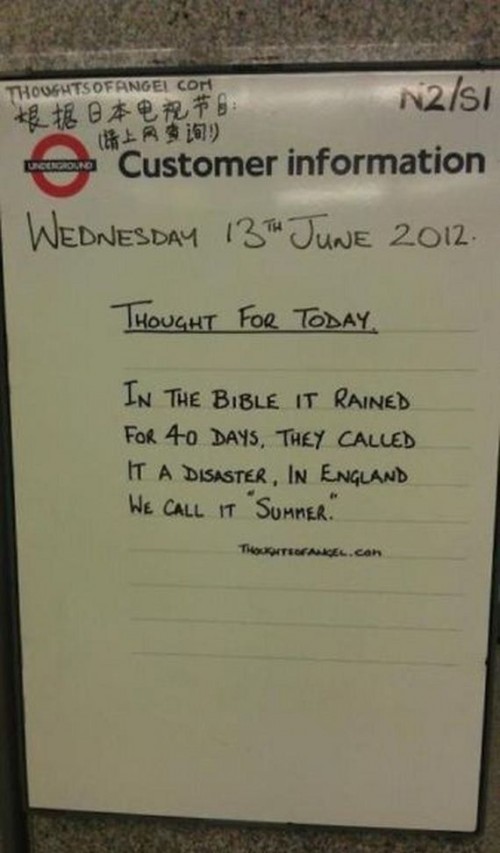 THOUGHTSOFANGEL COM
N2/S1
根据日本电视节目:
(请上网查询!)
UNDERGROUND
Customer information
WEDNESDAY 13TH JUNE 2012.
THOUGHT FOR TODAY.
IN THE BIBLE IT RAINED
FOR 40 DAYS, THEY CALLED
IT A DISASTER, IN ENGLAND
WE CALL IT "SUMMER."
THOUGHTSOFANGEL.COM